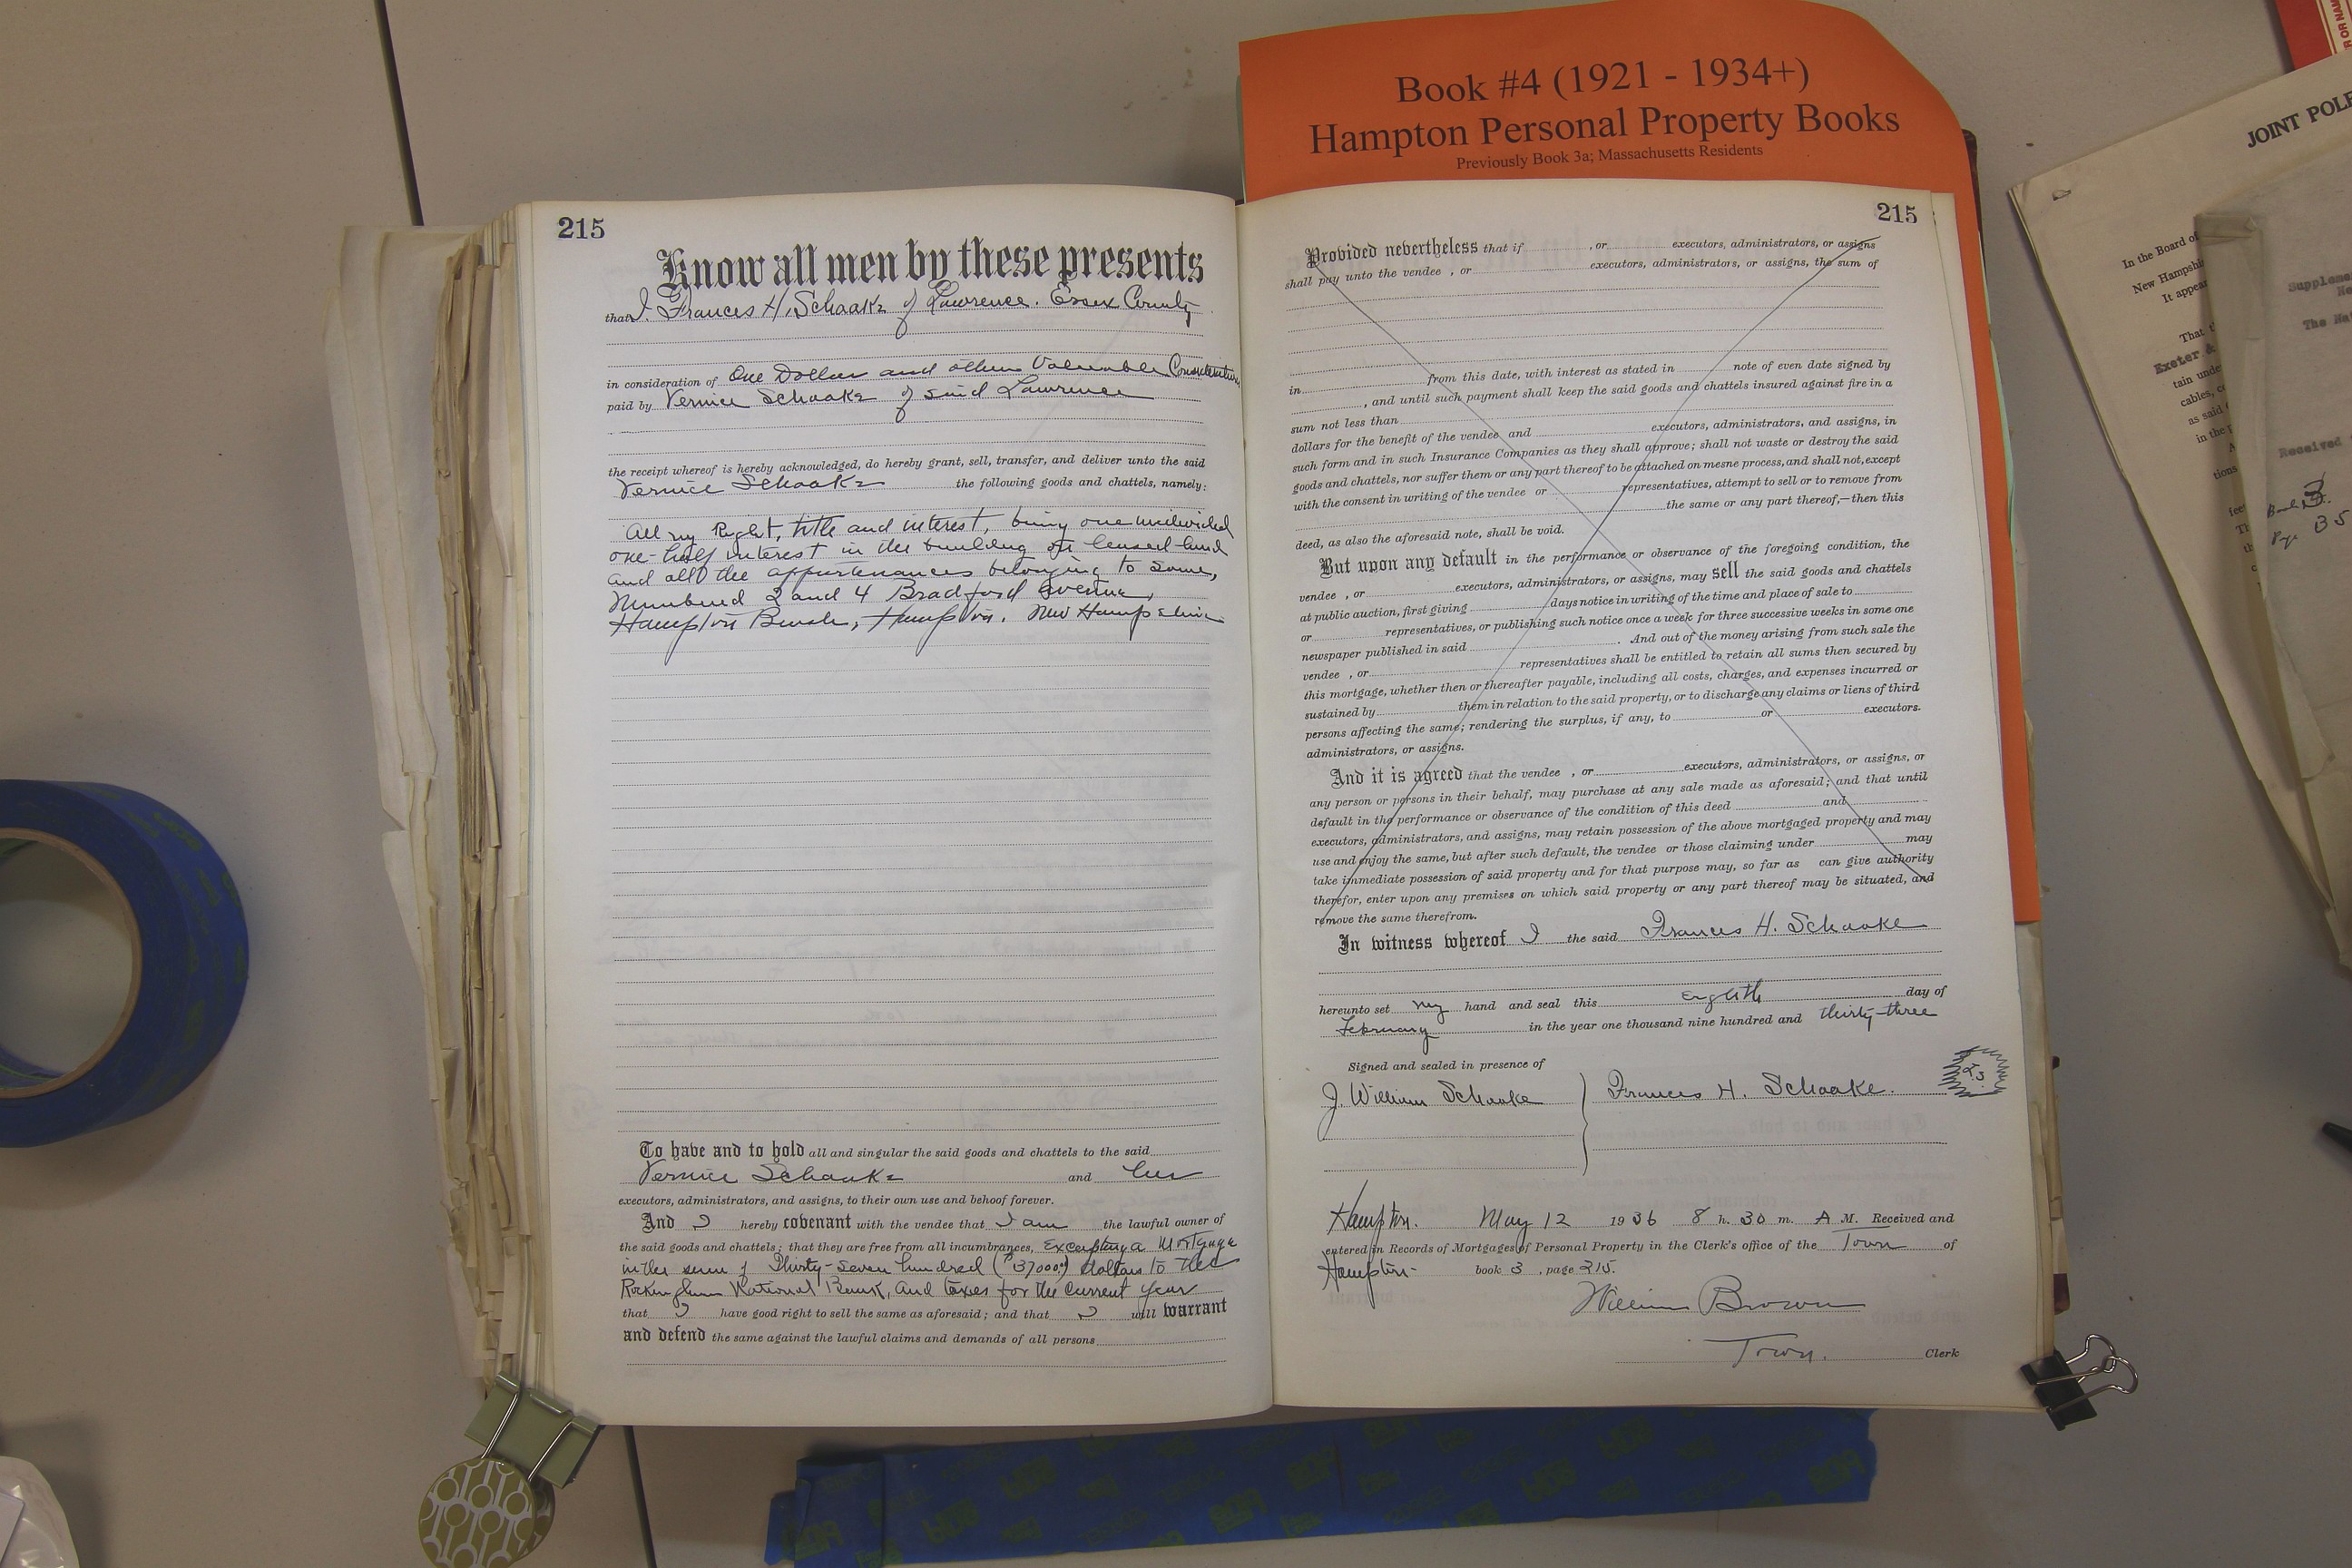 Book #4 (1921 - 1934+)
Hampton Personal Property Books
Previously Book 3a; Massachusetts Residents
215
Know all men by these presents
that I. Frances H. Schaake of Lawrence. Essex County
in consideration of One Dollar and other Valuable Consideration
paid by Vernice Schaake of said Lawrence
the receipt whereof is hereby acknowledged, do hereby grant, sell, transfer, and deliver unto the said
Vernice Schaake the following goods and chattels, namely:
All my Right, title and interest, being one undivided
one-half interest in the building on leased land
and all the appurtenances belonging to same,
Numbered 2 and 4 Bradford Avenue,
Hampton Beach, Hampton. New Hampshire
To have and to hold all and singular the said goods and chattels to the said
Vernice Schaake and her
executors, administrators, and assigns, to their own use and behoof forever.
And I hereby covenant with the vendee that I am the lawful owner of
the said goods and chattels; that they are free from all incumbrances, Excepting a Mortgage
in the sum of Thirty-seven hundred dollars to the
Rockingham National Bank, and taxes for the current year
that I have good right to sell the same as aforesaid; and that I will warrant
and defend the same against the lawful claims and demands of all persons
215
Provided nevertheless that if , or executors, administrators, or assigns
shall pay unto the vendee , or executors, administrators, or assigns, the sum of
in from this date, with interest as stated in note of even date signed by
, and until such payment shall keep the said goods and chattels insured against fire in a
sum not less than
dollars for the benefit of the vendee and executors, administrators, and assigns, in
such form and in such Insurance Companies as they shall approve; shall not waste or destroy the said
goods and chattels, nor suffer them or any part thereof to be attached on mesne process, and shall not, except
with the consent in writing of the vendee or representatives, attempt to sell or to remove from
the same or any part thereof,—then this
deed, as also the aforesaid note, shall be void.
But upon any default in the performance or observance of the foregoing condition, the
vendee , or executors, administrators, or assigns, may sell the said goods and chattels
at public auction, first giving days notice in writing of the time and place of sale to
or representatives, or publishing such notice once a week for three successive weeks in some one
newspaper published in said . And out of the money arising from such sale the
vendee , or representatives shall be entitled to retain all sums then secured by
this mortgage, whether then or thereafter payable, including all costs, charges, and expenses incurred or
sustained by them in relation to the said property, or to discharge any claims or liens of third
persons affecting the same; rendering the surplus, if any, to or executors.
administrators, or assigns.
And it is agreed that the vendee , or executors, administrators, or assigns, or
any person or persons in their behalf, may purchase at any sale made as aforesaid; and that until
default in the performance or observance of the condition of this deed and
executors, administrators, and assigns, may retain possession of the above mortgaged property and may
use and enjoy the same, but after such default, the vendee or those claiming under may
take immediate possession of said property and for that purpose may, so far as can give authority
therefor, enter upon any premises on which said property or any part thereof may be situated, and
remove the same therefrom.
In witness whereof I the said Frances H. Schaake
hereunto set my hand and seal this eighth day of
February in the year one thousand nine hundred and thirty-three
Signed and sealed in presence of
J. William Schaake Frances H. Schaake.
Hampton. May 12 1936 8 h. 30 m. A M. Received and
entered in Records of Mortgages of Personal Property in the Clerk's office of the Town of
Hampton book 3 , page 215.
William Brown
Town. Clerk
JOINT POLE
In the Board of
New Hampshir
It appear
That t
Exeter &
tain unde
cables, c
as said
in the p
tions
Supplemen
The Nat
Received
Book 3.